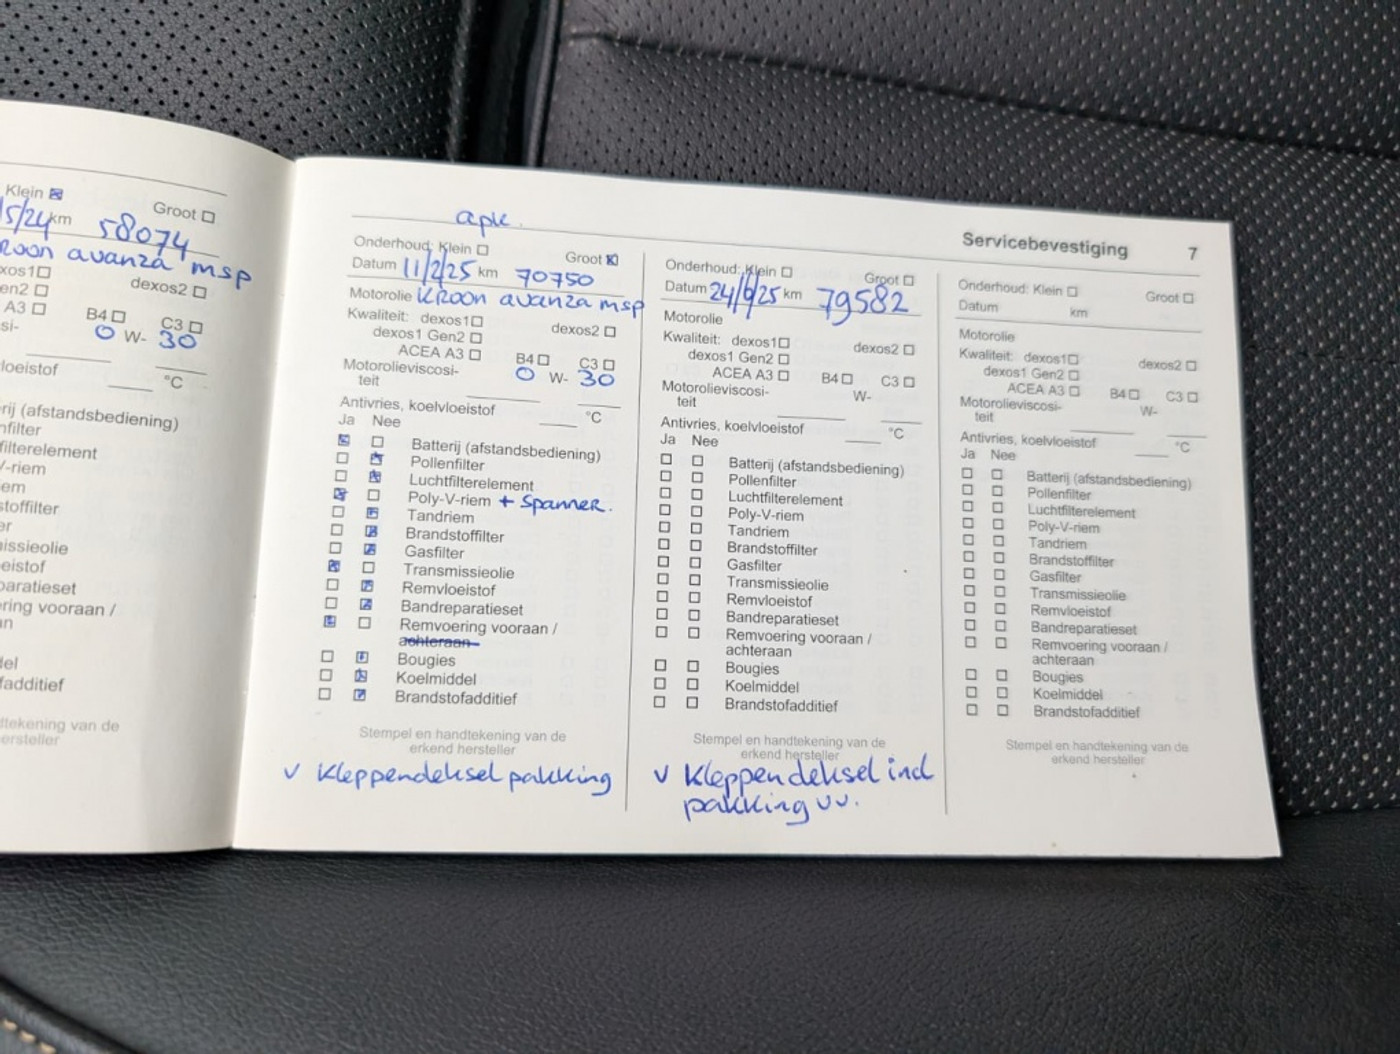 Klein Groot
15/24 km 58074
roon avanza msp
xos1
en2 dexos2
A3 B4 C3
si- 0 W- 30
loeistof
°C
rij (afstandsbediening)
nfilter
filterelement
V-riem
em
toffilter
er
nissieolie
eistof
paratieset
ering vooraan /
n
del
fadditief
dtekening van de
ersteller
Servicebevestiging 7
apk.
Onderhoud: Klein Groot
Datum 11/2/25 km 70750
Motorolie Kroon avanza msp
Kwaliteit: dexos1 dexos2
dexos1 Gen2
ACEA A3 B4 C3
Motorolieviscosi- 0 W- 30
teit
Antivries, koelvloeistof °C
Ja Nee
Batterij (afstandsbediening)
Pollenfilter
Luchtfilterelement
Poly-V-riem + Spanner.
Tandriem
Brandstoffilter
Gasfilter
Transmissieolie
Remvloeistof
Bandreparatieset
Remvoering vooraan /
achteraan
Bougies
Koelmiddel
Brandstofadditief
Stempel en handtekening van de
erkend hersteller
v Kleppendeksel pakking
Onderhoud: Klein Groot
Datum 24/9/25 km 79582
Motorolie
Kwaliteit: dexos1 dexos2
dexos1 Gen2
ACEA A3 B4 C3
Motorolieviscosi- W-
teit
Antivries, koelvloeistof °C
Ja Nee
Batterij (afstandsbediening)
Pollenfilter
Luchtfilterelement
Poly-V-riem
Tandriem
Brandstoffilter
Gasfilter
Transmissieolie
Remvloeistof
Bandreparatieset
Remvoering vooraan /
achteraan
Bougies
Koelmiddel
Brandstofadditief
Stempel en handtekening van de
erkend hersteller
v Kleppendeksel incl
pakking vv.
Onderhoud: Klein Groot
Datum km
Motorolie
Kwaliteit: dexos1 dexos2
dexos1 Gen2
ACEA A3 B4 C3
Motorolieviscosi- W-
teit
Antivries, koelvloeistof °C
Ja Nee
Batterij (afstandsbediening)
Pollenfilter
Luchtfilterelement
Poly-V-riem
Tandriem
Brandstoffilter
Gasfilter
Transmissieolie
Remvloeistof
Bandreparatieset
Remvoering vooraan /
achteraan
Bougies
Koelmiddel
Brandstofadditief
Stempel en handtekening van de
erkend hersteller